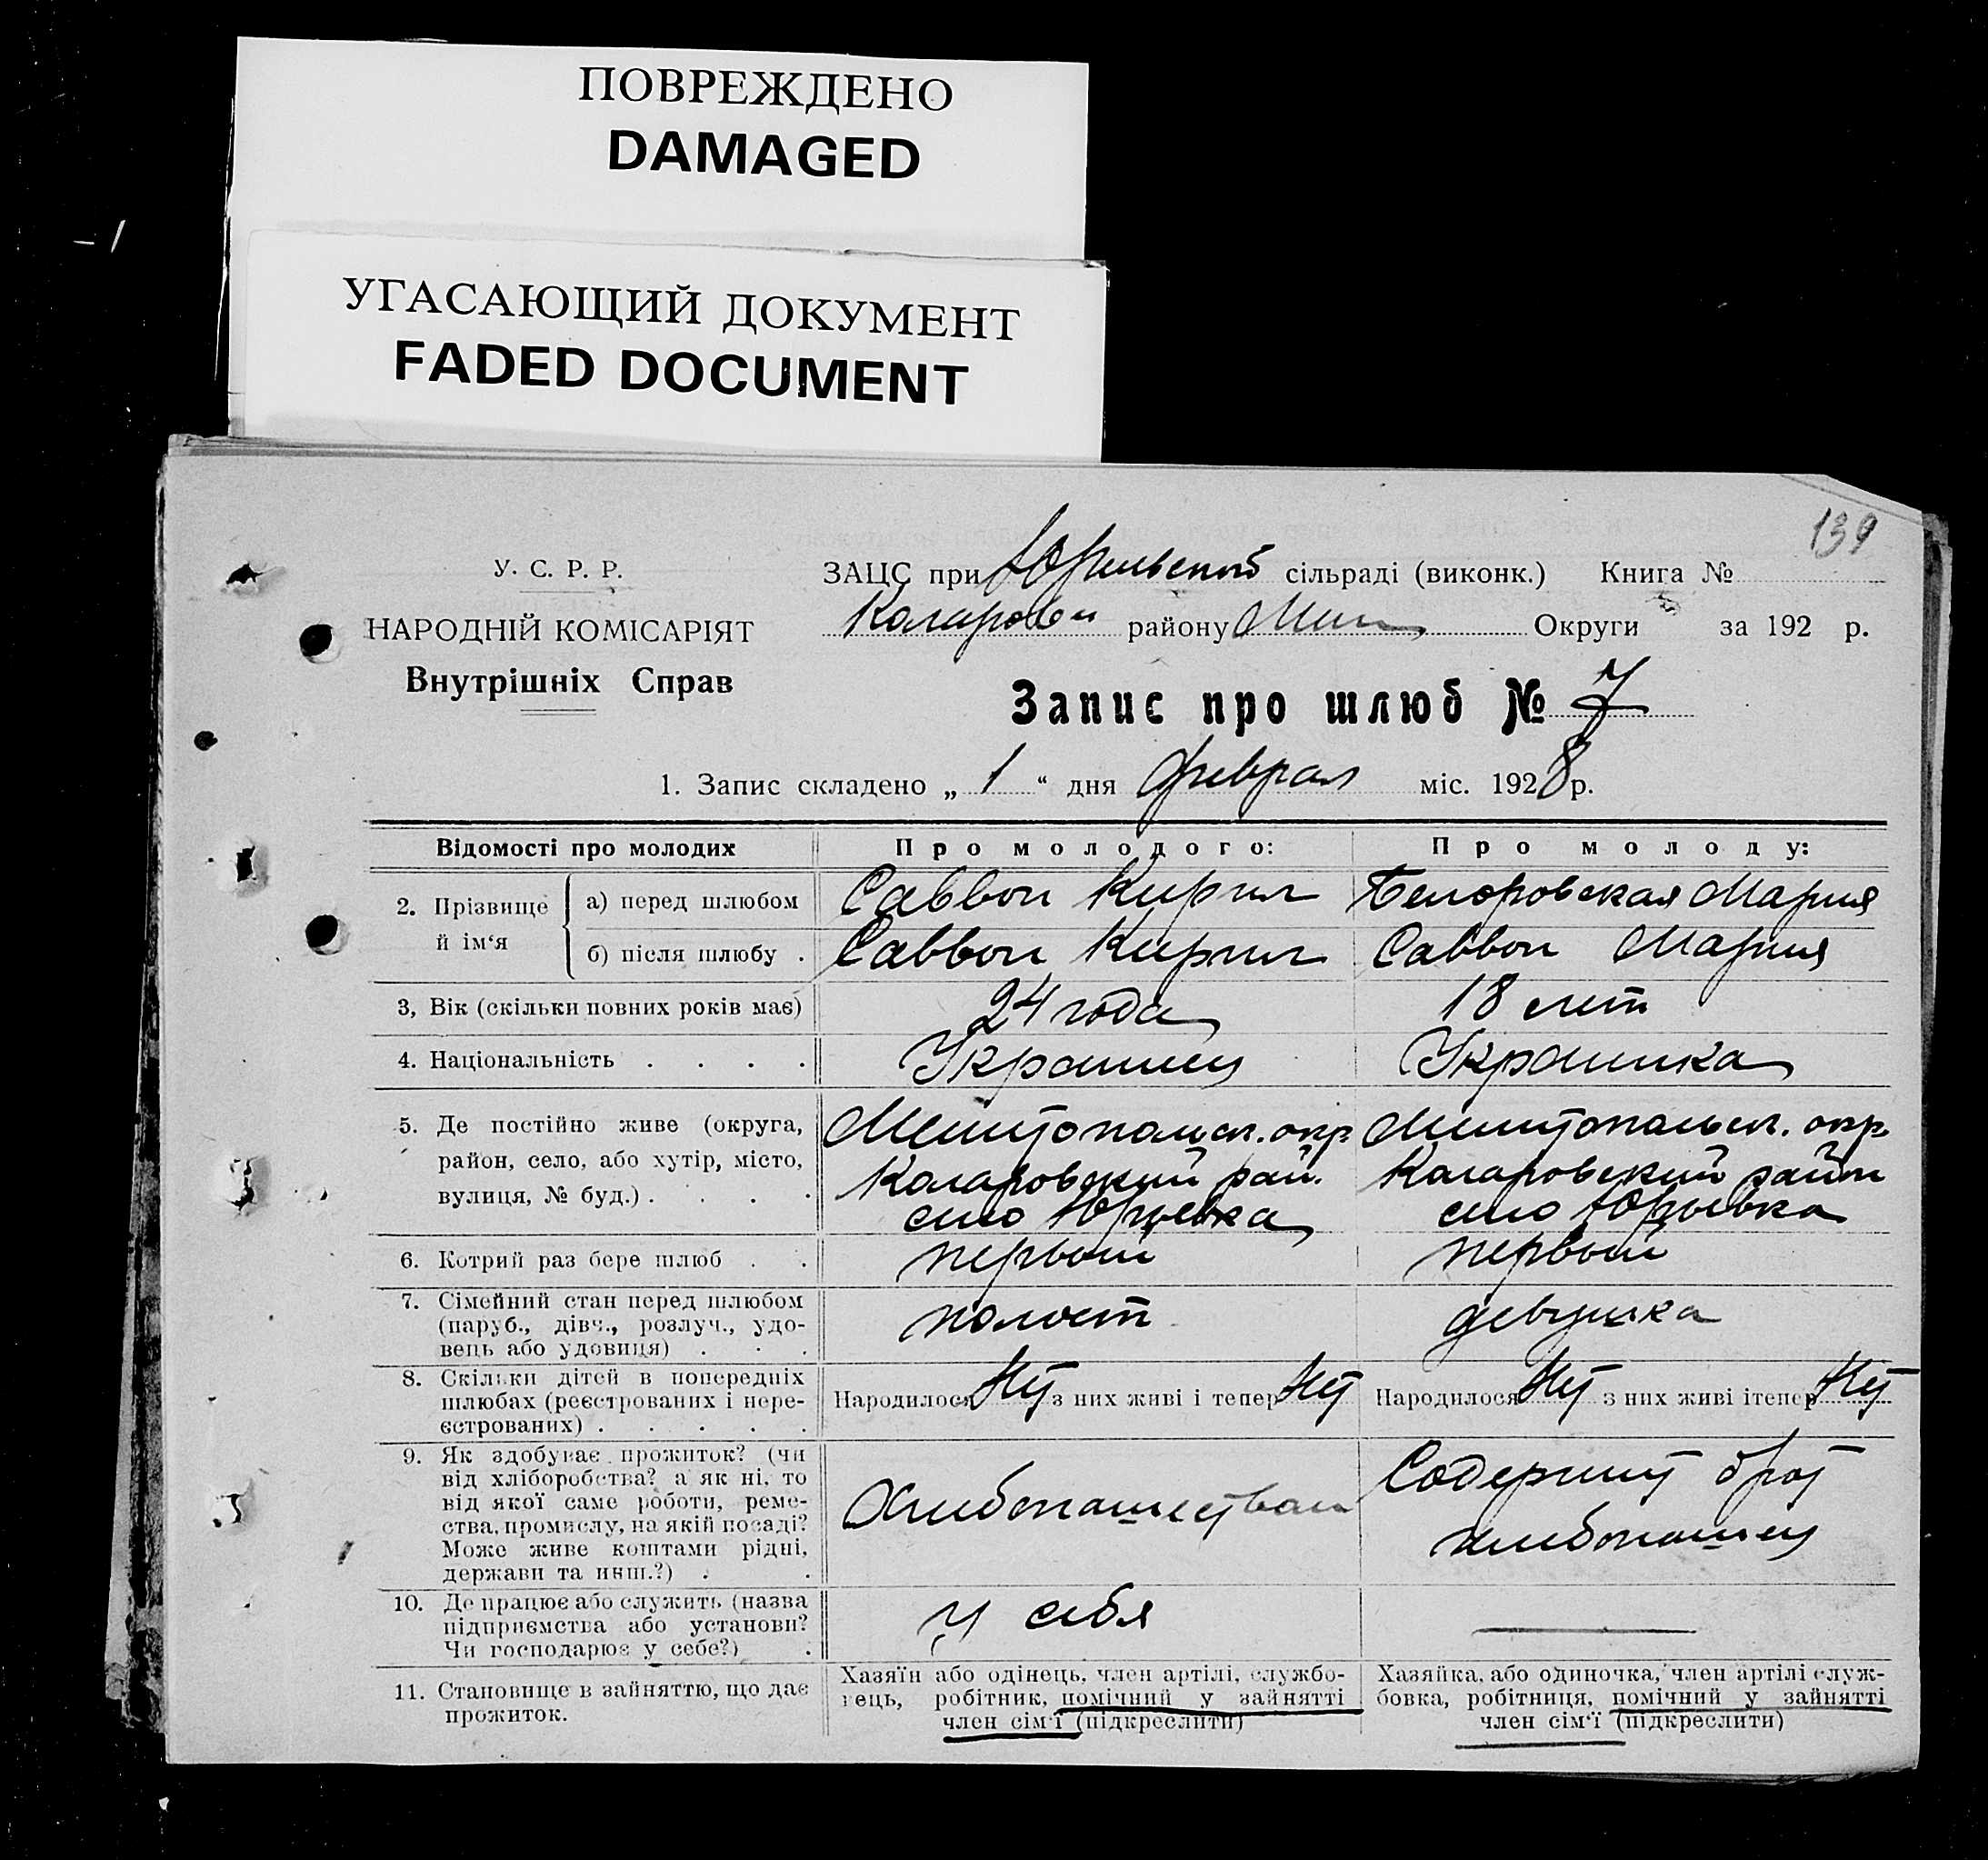 ПОВРЕЖДЕНО
DAMAGED
УГАСАЮЩИЙ ДОКУМЕНТ
FADED DOCUMENT
139
У. С. Р. Р.
НАРОДНІЙ КОМІСАРІЯТ
Внутрішніх Справ
ЗАЦС при Юрьевской сільраді (виконк.) Книга №
Коларов району Мел Округи за 192 р.
Запис про шлюб № 7
1. Запис складено „ 1 “ дня феврал міс. 1928 р.
Відомості про молодих Про молодого: Про молоду:
2. Прізвище й ім‘я
а) перед шлюбом Саввон Кирил Мария
б) після шлюбу . Саввон Кирил Саввон Мария
3, Вік (скільки повних років має) 24 года 18 лет
4. Національність . . . . Украинец Украинка
5. Де постійно живе (округа, район, село, або хутір, місто, вулиця, № буд.) . . . .
Мелитопольск. окр. Коларовский рай. село Юрьевка
Мелитопольск. окр. Коларовский район село Юрьевка
6. Котрий раз бере шлюб . . первый первый
7. Сімейний стан перед шлюбом (паруб., дівч., розлуч., удовець або удовиця) . . . холост девушка
8. Скільки дітей в попередніх шлюбах (реєстрованих і нереєстрованих) . . . . .
Народилося Нет з них живі і тепер Нет
Народилося Нет з них живі ітепер Нет
9. Як здобуває прожиток? (чи від хліборобства? а як ні, то від якої саме роботи, ремества, промислу, на якій посаді? Може живе коштами рідні, держави та инш.?) . .
Хлебопашеством
Содержит брат
хлебопашец
10. Де працює або служить (назва підприємства або установи? Чи господарює у себе?) .
у себя
11. Становище в зайняттю, що дає прожиток.
Хазяїн або одінець, член артілі, службовець, робітник, помічний у зайнятті член сім‘ї (підкреслити)
Хазяйка, або одиночка, член артілі службовка, робітниця, помічний у зайнятті член сім‘ї (підкреслити)